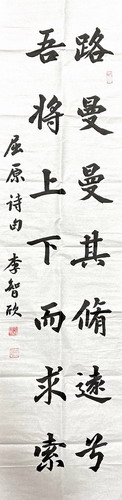 路曼曼其脩遠兮
吾將上下而求索
屈原诗句 李智欣